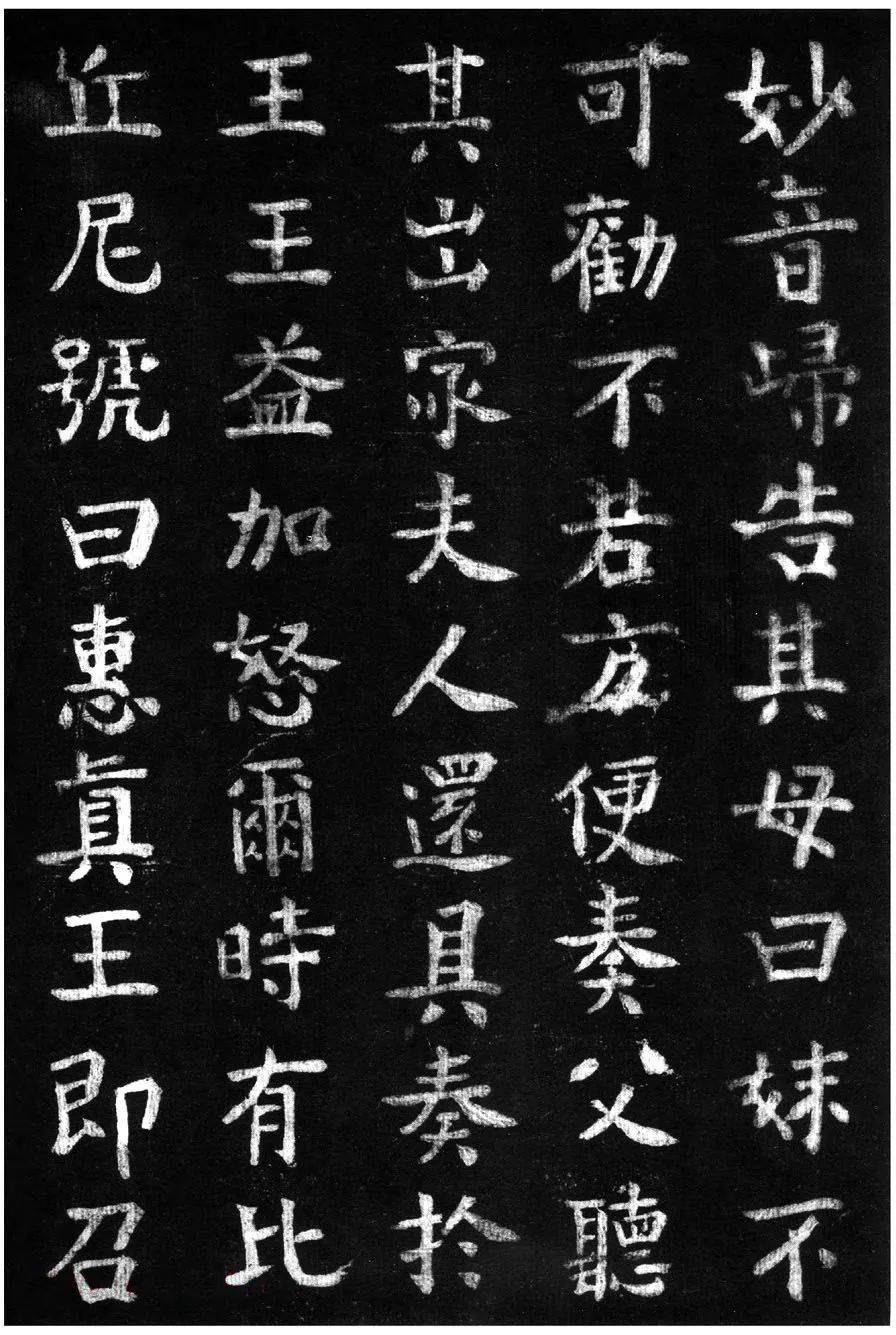 妙音歸告其母曰妹不
可勸不若方便奏父聽
其出家夫人還具奏於
王王益加怒爾時有比
丘尼號曰惠眞王即召